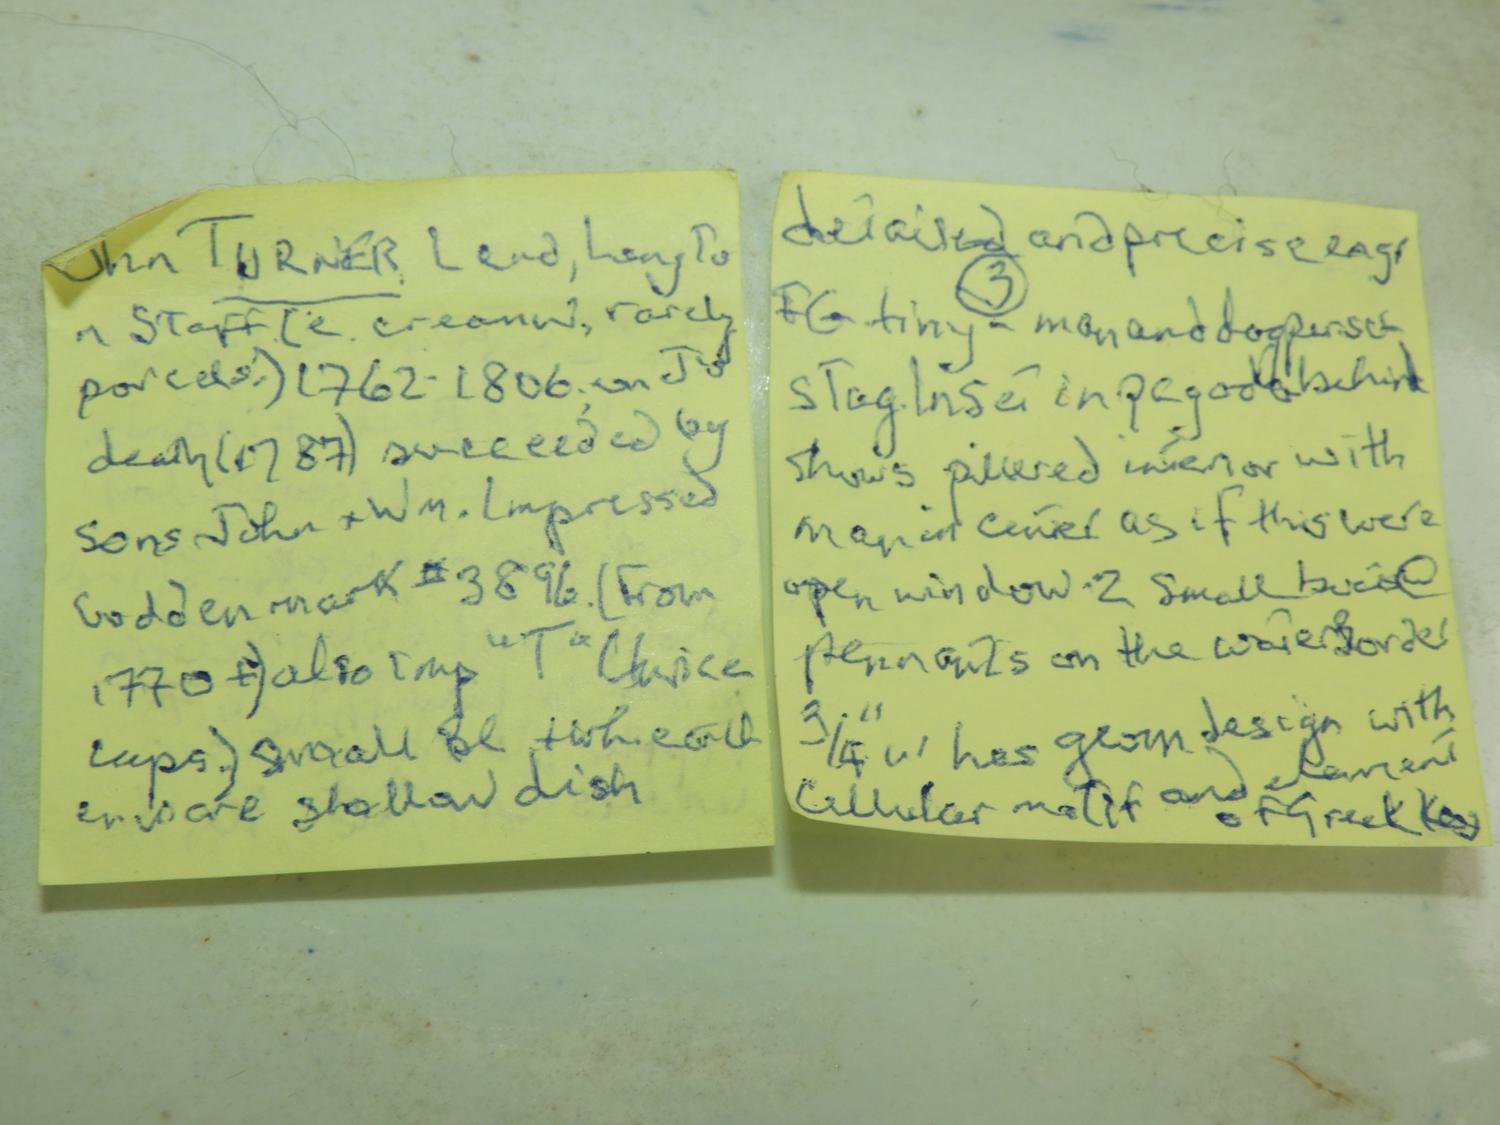 John TURNER Lend, Longto
n Staff. (e. creamw., rarely
porcels.) 1762-1806. on
death (1787) succeeded by
sons John + Wm. Impressed
Godden mark #3896. (From
1770+) also imp "T" (twice
caps.) small Bl + wh. earth
enware shallow dish
detailed and precise engr
③
EG tiny - man and dog
stag. Inset in pagoda behind
shows pillered interior with
man in center as if this were
open window. 2 small
pennants on the water. Border
3/4" w has geom design with
cellular motif and element
of Greek Key